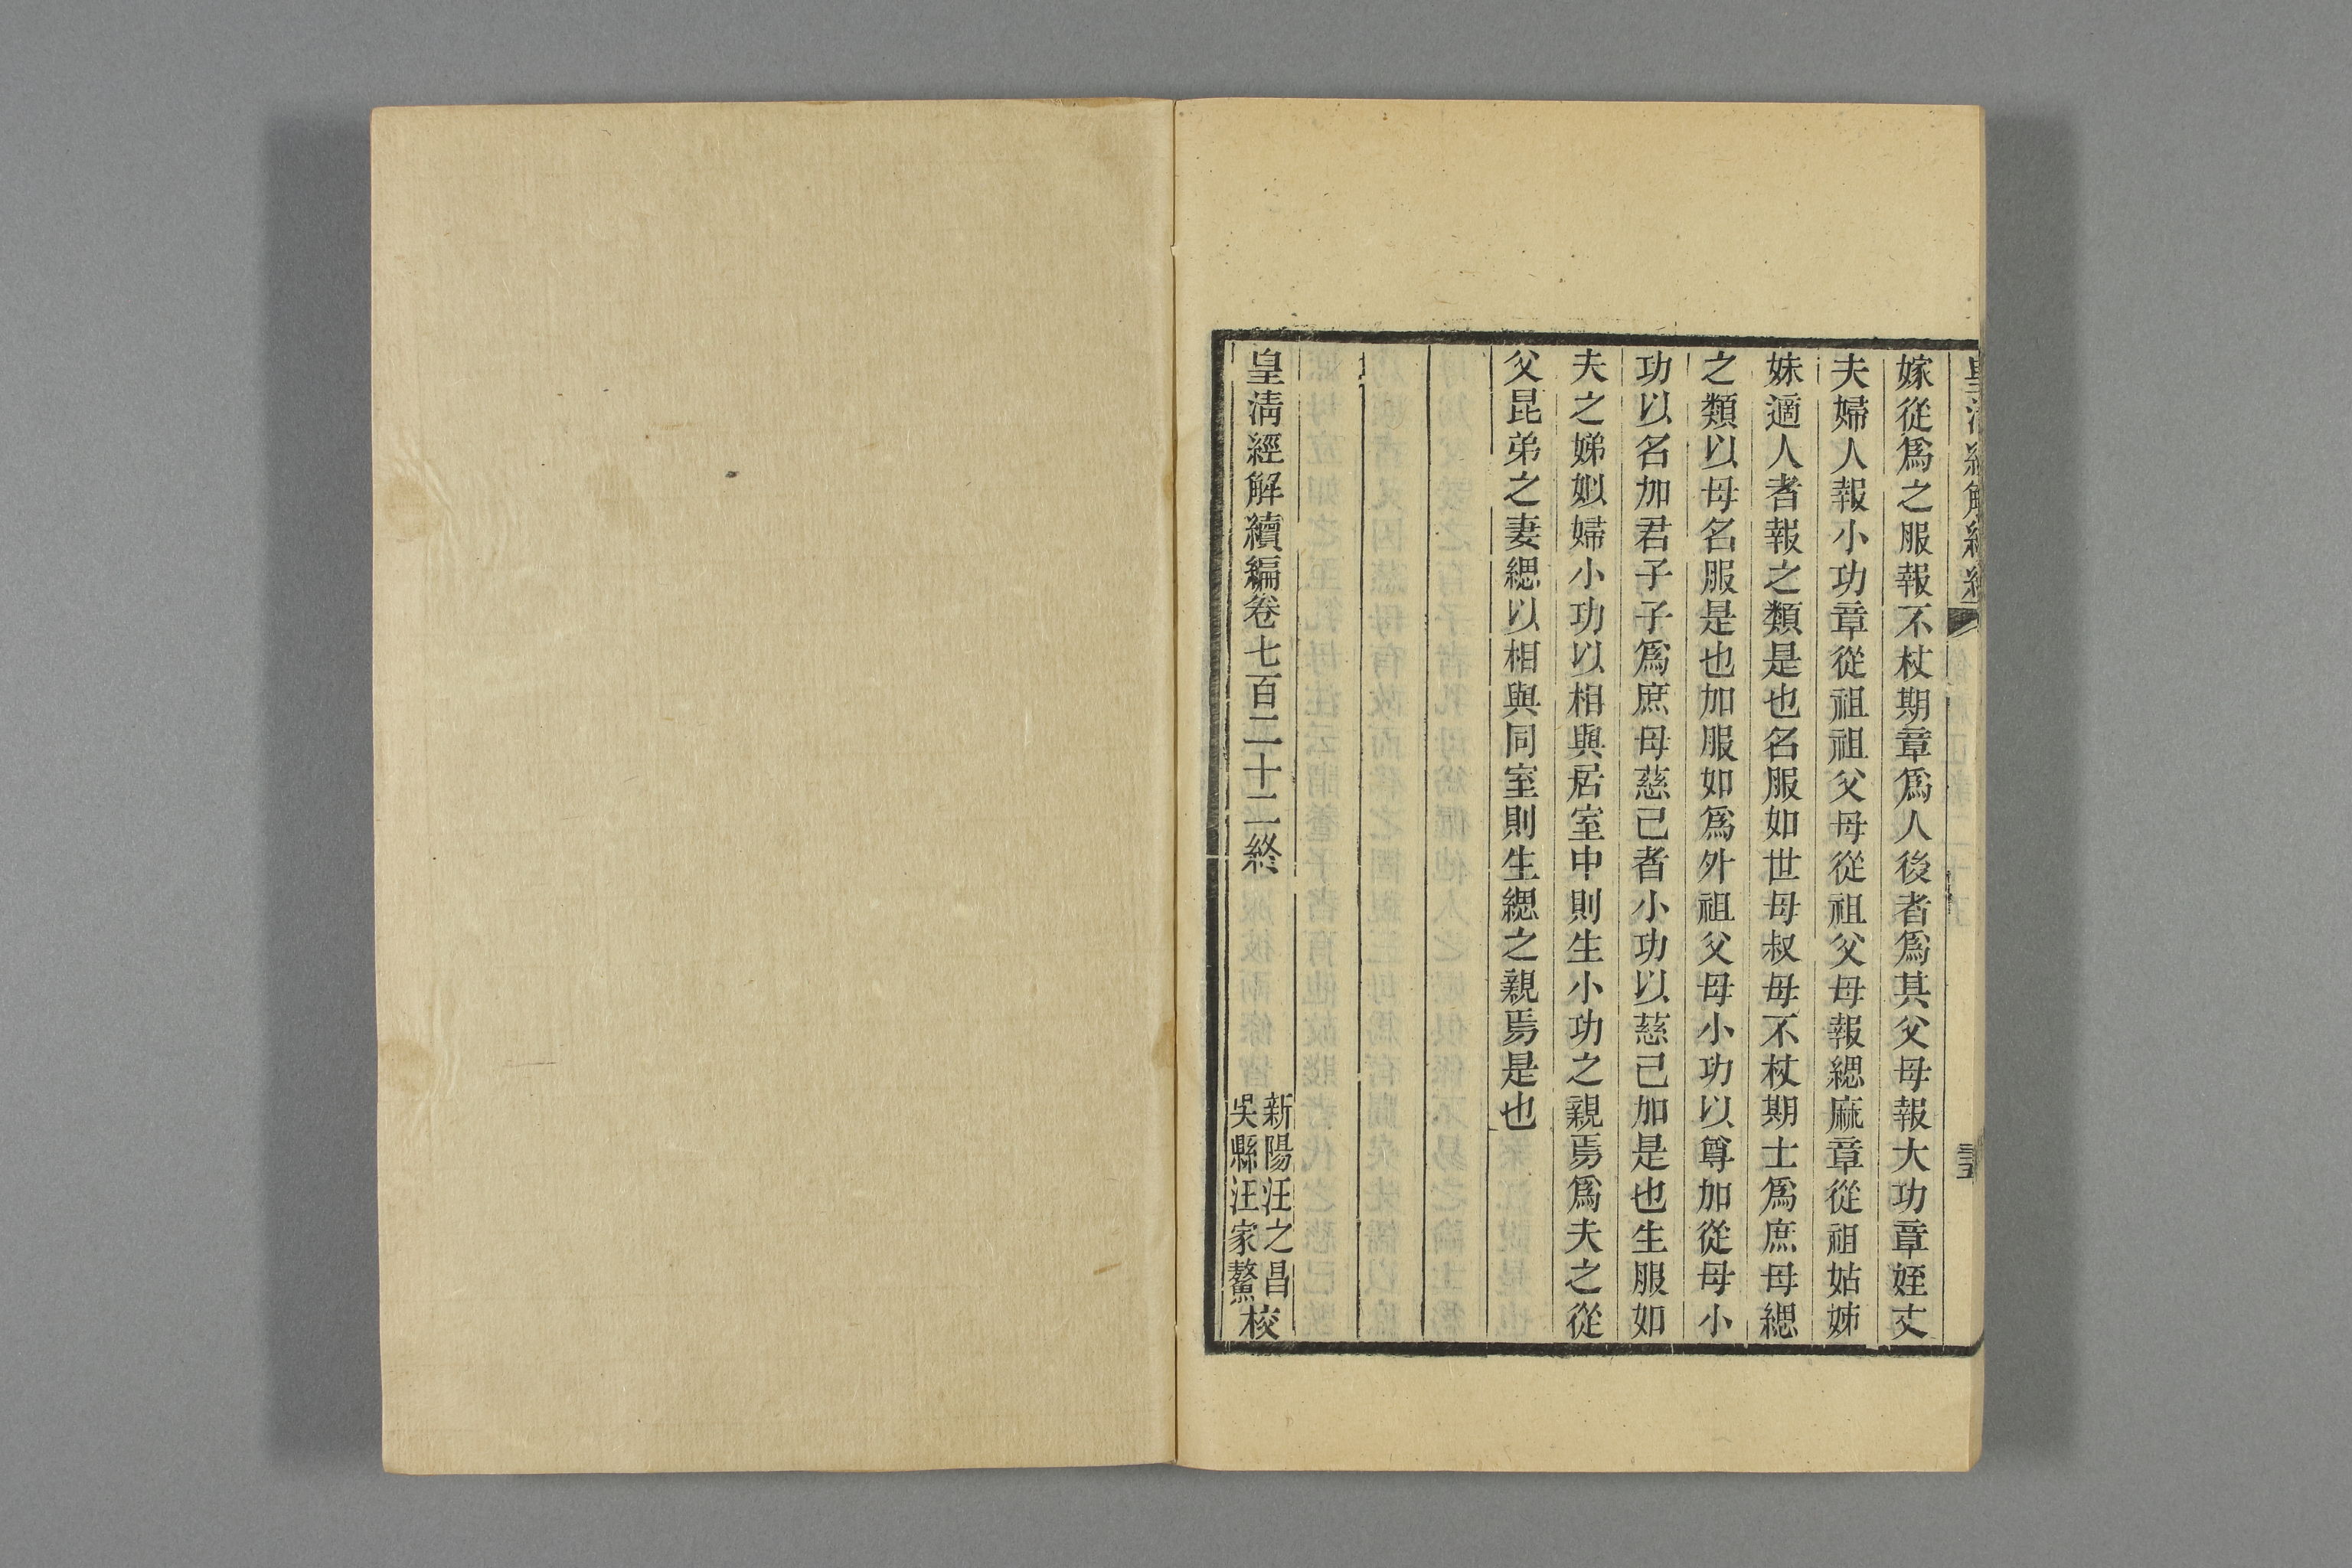 嫁從爲之服報不杖期章爲人後者爲其父母報大功章姪丈
夫婦人報小功章從祖祖父母從祖父母報緦麻章從祖姑姊
妹適人者報之類是也名服如世母叔母不杖期士爲庶母緦
之類以母名服是也加服如爲外祖父母小功以尊加從母小
功以名加君子子爲庶母慈己者小功以慈己加是也生服如
夫之娣姒婦小功以相與居室中則生小功之親焉爲夫之從
父昆弟之妻緦以相與同室則生緦之親焉是也
皇清經解續編卷七百二十二終
新陽汪之昌
吳縣汪家鰲
校